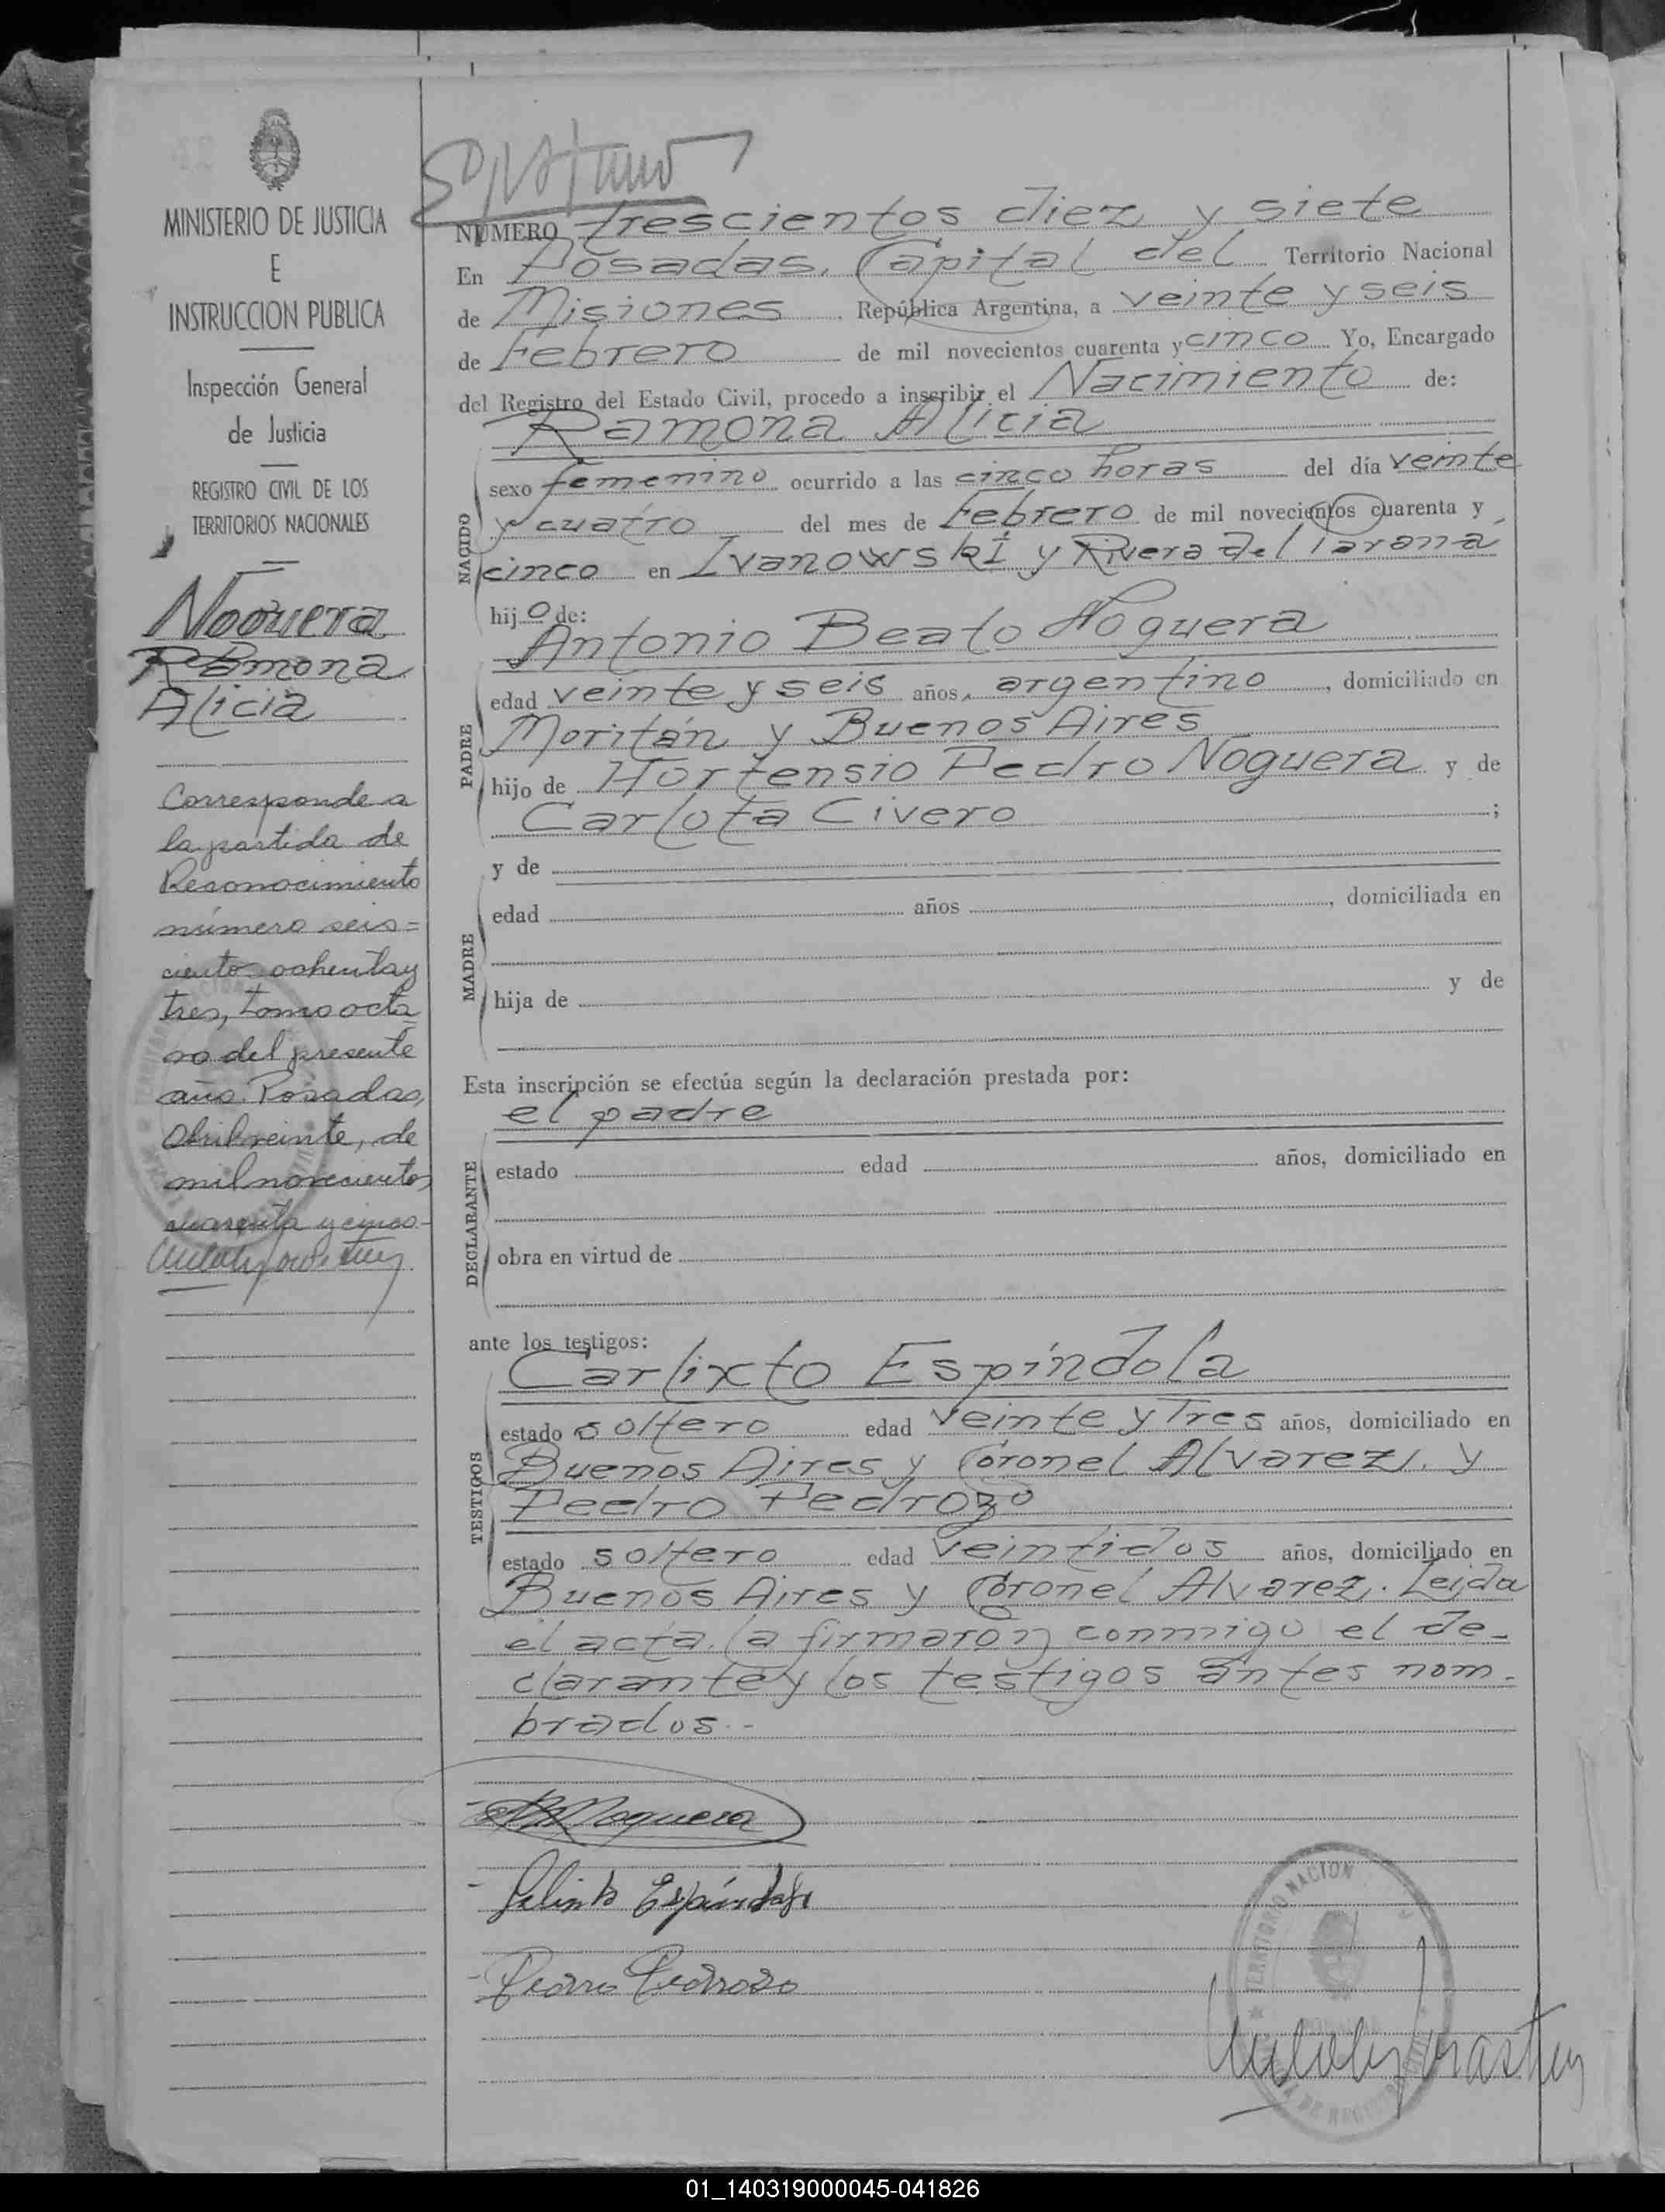 MINISTERIO DE JUSTICIA
E
INSTRUCCION PUBLICA
Inspección General
de Justicia
REGISTRO CIVIL DE LOS
TERRITORIOS NACIONALES
Noguera
Ramona
Alicia
Corresponde a
la partida de
Reconocimiento
número seis=
ciento ochenta y
tres, tomo octa
vo del presente
año. Posadas,
Abril veinte, de
mil novecientos
cuarenta y cinco-
NUMERO trescientos diez y siete
En Posadas, Capital del Territorio Nacional
de Misiones República Argentina, a veinte y seis
de Febrero de mil novecientos cuarenta y cinco Yo, Encargado
del Registro del Estado Civil, procedo a inscribir el Nacimiento de:
Ramona Alicia
NACIDO
sexo femenino ocurrido a las cinco horas del día veinte
y cuatro del mes de Febrero de mil novecientos cuarenta y
cinco en Ivanowski y Rivera del Parana
hijo de:
Antonio Beato Noguera
PADRE
edad veinte y seis años, argentino, domiciliado en
Moritán y Buenos Aires
hijo de Hortensio Pedro Noguera y de
Carlota Civero ;
y de
MADRE
edad años , domiciliada en
hija de y de
Esta inscripción se efectúa según la declaración prestada por:
el padre
DECLARANTE
estado edad años, domiciliado en
obra en virtud de
ante los testigos:
Carlixto Espíndola
TESTIGOS
estado soltero edad veinte y Tres años, domiciliado en
Buenos Aires y Coronel Alvarez, y
Pedro Pedrozo
estado soltero edad veintidos años, domiciliado en
Buenos Aires y Coronel Alvarez. Leida
el acta, la firmaron conmigo el de-
clarante y los testigos antes nom-
brados.-
Noguera
Espíndola
Pedro Pedrozo
TERRITORIO NACION
01_140319000045-041826